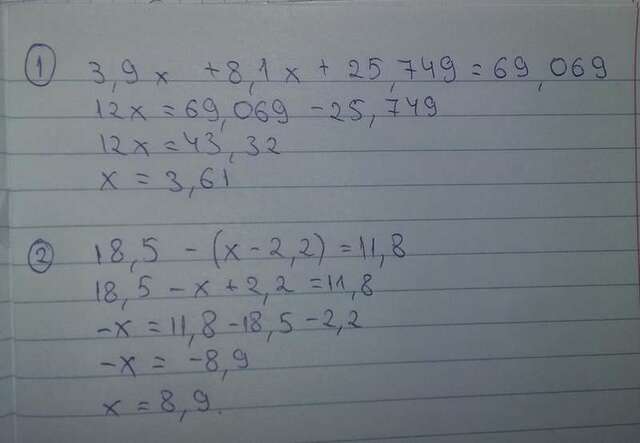 ① 3,9x + 8,1x + 25,749 = 69,069
12x = 69,069 - 25,749
12x = 43,32
x = 3,61
② 18,5 - (x - 2,2) = 11,8
18,5 - x + 2,2 = 11,8
-x = 11,8 - 18,5 - 2,2
-x = -8,9
x = 8,9.